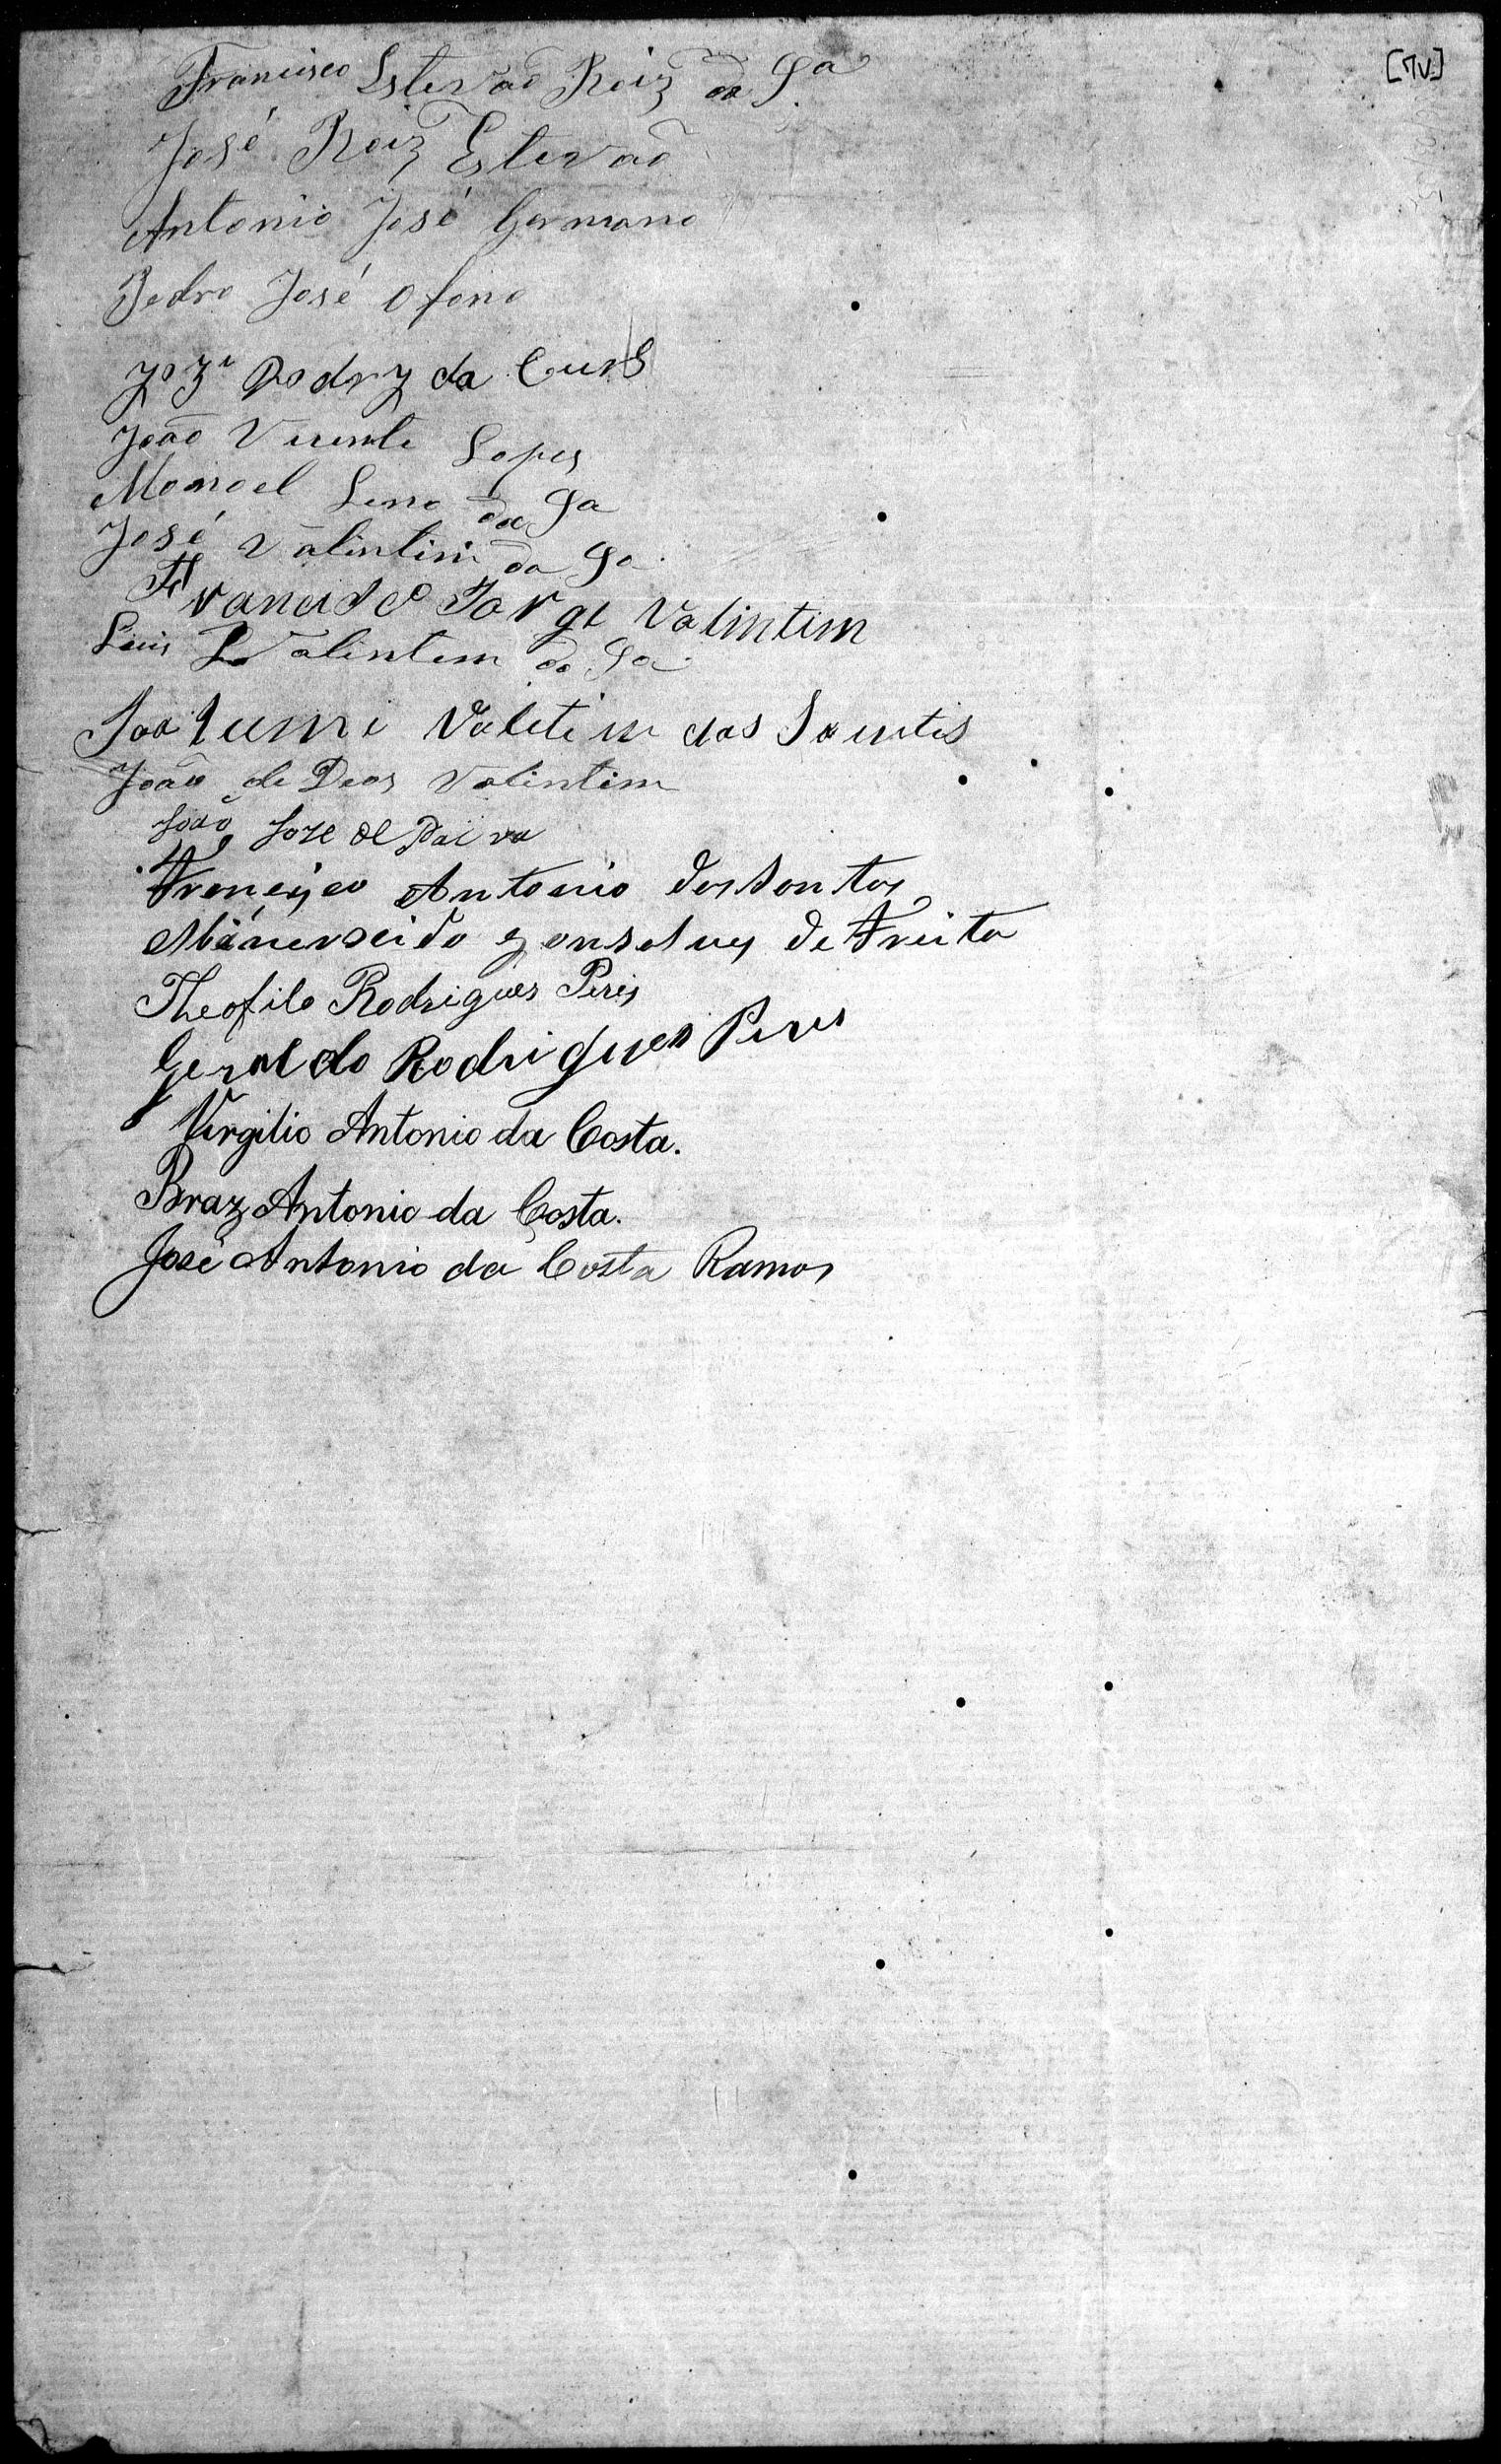 [7v.]
Francisco Estevão Roiz da Sa
José Roiz Estevão
Antonio José Germano
Pedro José Ofono
Joze Rodrz da Cunh
João Vicente Lopes
Manoel Lino da Sa
José Valintim da Sa
Francisco Jorge Valintim
Luis Valintim da Sa
Joaqumi Valetim das Santis
João de Deos Valintim
João Joze de Paiva
Francisco Antonio dos Santos
gonsalves de Freita
Theofilo Rodrigues Peris
Geraldo Rodrigues Peres
Virgilio Antonio da Costa.
Braz Antonio da Costa.
José Antonio da Costa Ramos